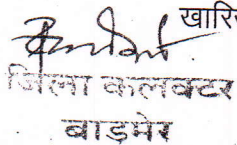 खारि
जिला कलक्टर
बाड़मेर